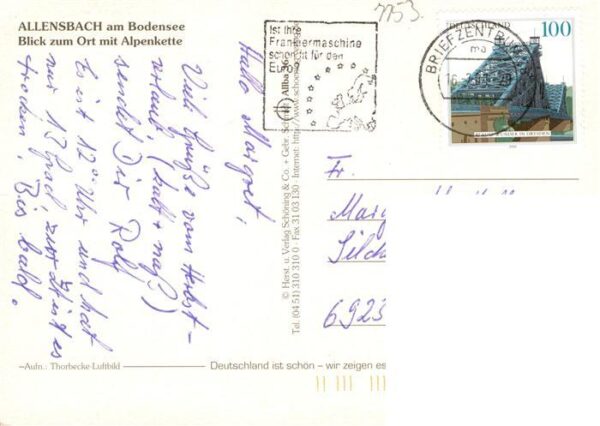 7753.
ALLENSBACH am Bodensee
Blick zum Ort mit Alpenkette
Ist Ihre
Frankiermaschine
schon fit für den
Euro?
BRIEFZENTRUM
ma
DEUTSCHLAND
100
BLAUES WUNDER IN DRESDEN
Hallo Margret,
Viele Grüße vom Herbst-
urlaub, (kalt + naß!)
sendet Dir Rolf
Es ist 12° Uhr und hat
nur 13 Grad, zurzeit ist es
trocken. Bis bald.
Fr.
Marg
Silch
6923
© Herst. u. Verlag Schöning & Co. + Gebr. Schmidt
Tel. (04 51) 310 310 0 · Fax 31 03 130 · Internet: http://www.schoening-verlag
Allba 36
Aufn.: Thorbecke-Luftbild
Deutschland ist schön – wir zeigen es